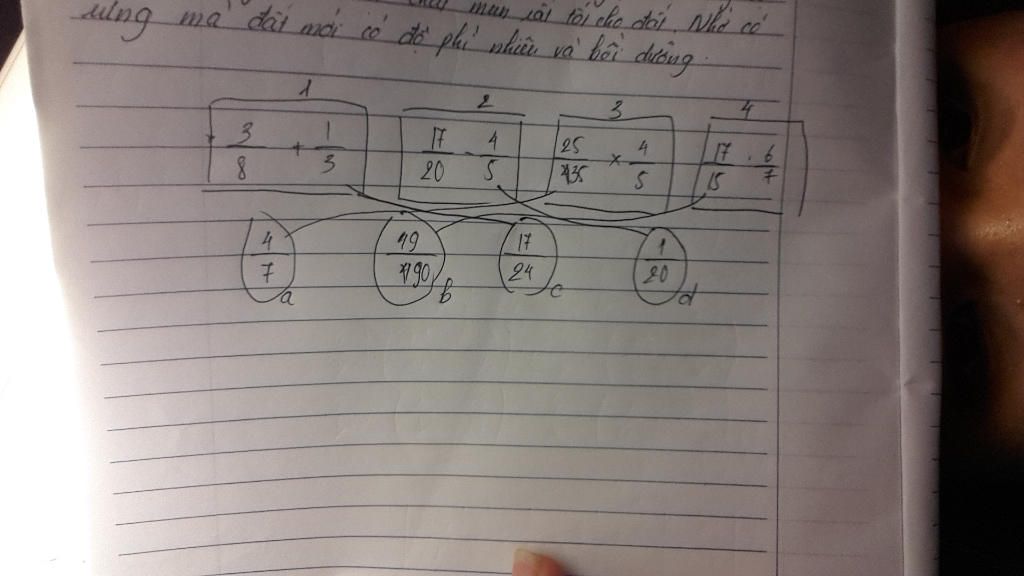 mùn rồi tôi cho đất. Nhờ có
rừng mà đất mới có độ phì nhiêu và bồi dưỡng.
1 2 3 4
3/8 + 1/3 17/20 - 4/5 25/35 × 4/5 17/15 . 6/7
4/7 a 49/90 b 17/24 c 1/20 d